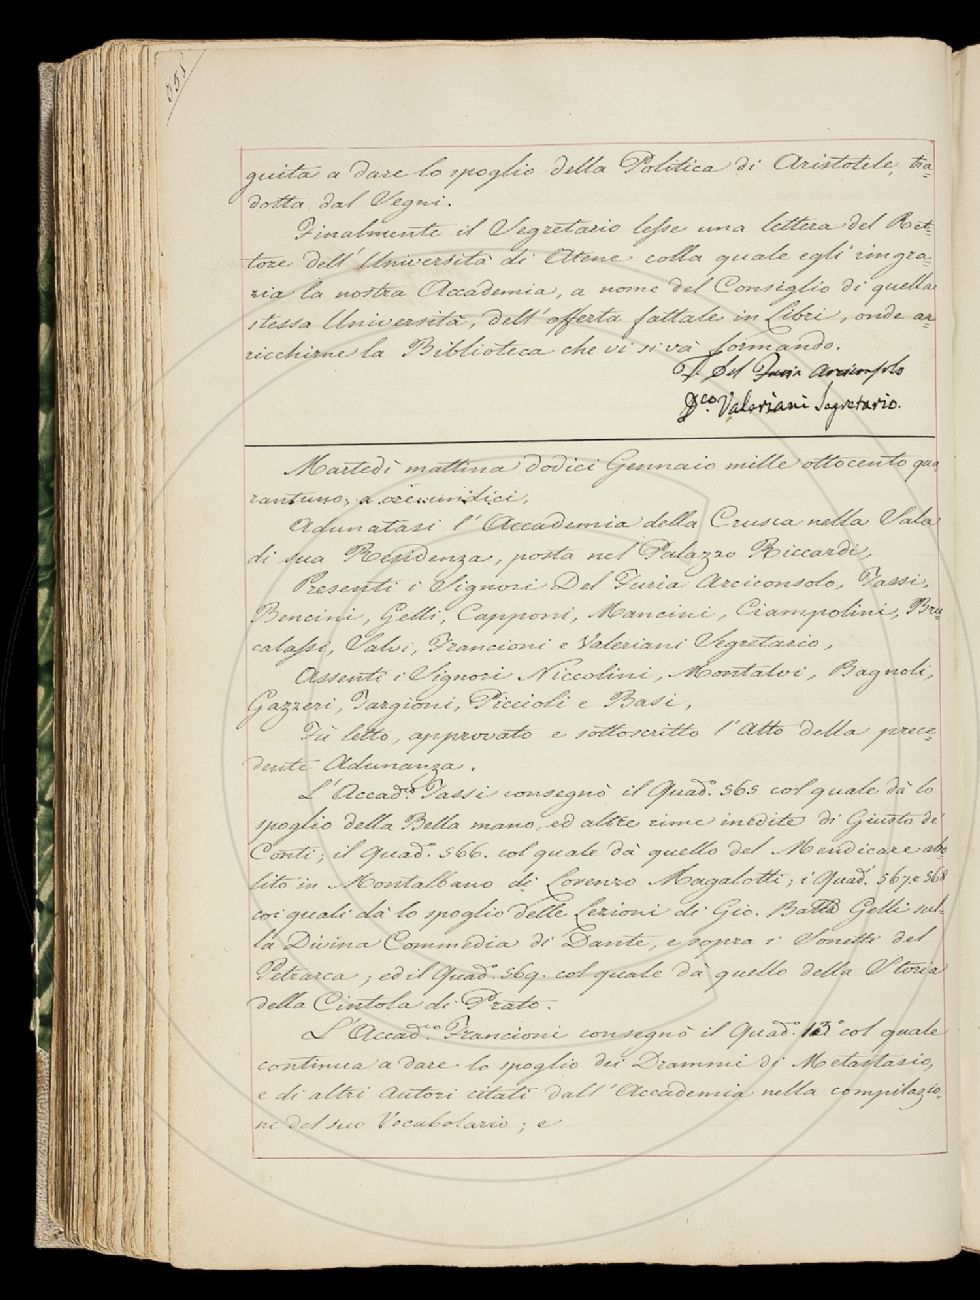 858
guita a dare lo spoglio della Politica di Aristotele, tra=
dotta dal Segni.
Finalmente il Segretario lesse una lettera del Ret=
tore dell'Università di Atene colla quale egli ringra=
zia la nostra Accademia, a nome del Consiglio di quella
stessa Università, dell'offerta fattale in Libri, onde ar=
ricchirne la Biblioteca che vi si và formando.
F. Del Furia Arciconsolo
Dco. Valeriani Segretario.
Martedì mattina dodici Gennaio mille ottocento qua=
rantuno, a ore undici,
Adunatasi l'Accademia della Crusca nella Sala
di sua Residenza, posta nel Palazzo Riccardi,
Presenti i Signori Del Furia Arciconsolo, Tassi,
Bencini, Gelli, Capponi, Mancini, Ciampolini, Bru=
calassi, Salvi, Francioni e Valeriani Segretario,
Assenti i Signori Niccolini, Montalvi, Bagnoli,
Gazzeri, Targioni, Piccioli e Basi,
Fù letto, approvato e sottoscritto l'Atto della prece=
dente Adunanza.
L'Accadco. Tassi consegnò il Quado. 565 col quale dà lo
spoglio della Bella mano, ed altre rime inedite di Giusto de'
Conti; il Quado. 566. col quale dà quello del Mendicare abo=
lito in Montalbano di Lorenzo Magalotti; i Quadi. 567. e 568
coi quali dà lo spoglio delle Lezioni di Gio. Batta Gelli sul=
la Divina Commedia di Dante, e sopra i Sonetti del
Petrarca; ed il Quado. 569. col quale dà quello della Storia
della Cintola di Prato.
L'Accadco. Francioni consegnò il Quado. 13° col quale
continua a dare lo spoglio dei Drammi di Metastasio,
e di altri Autori citati dall'Accademia nella compilazio=
ne del suo Vocabolario; e